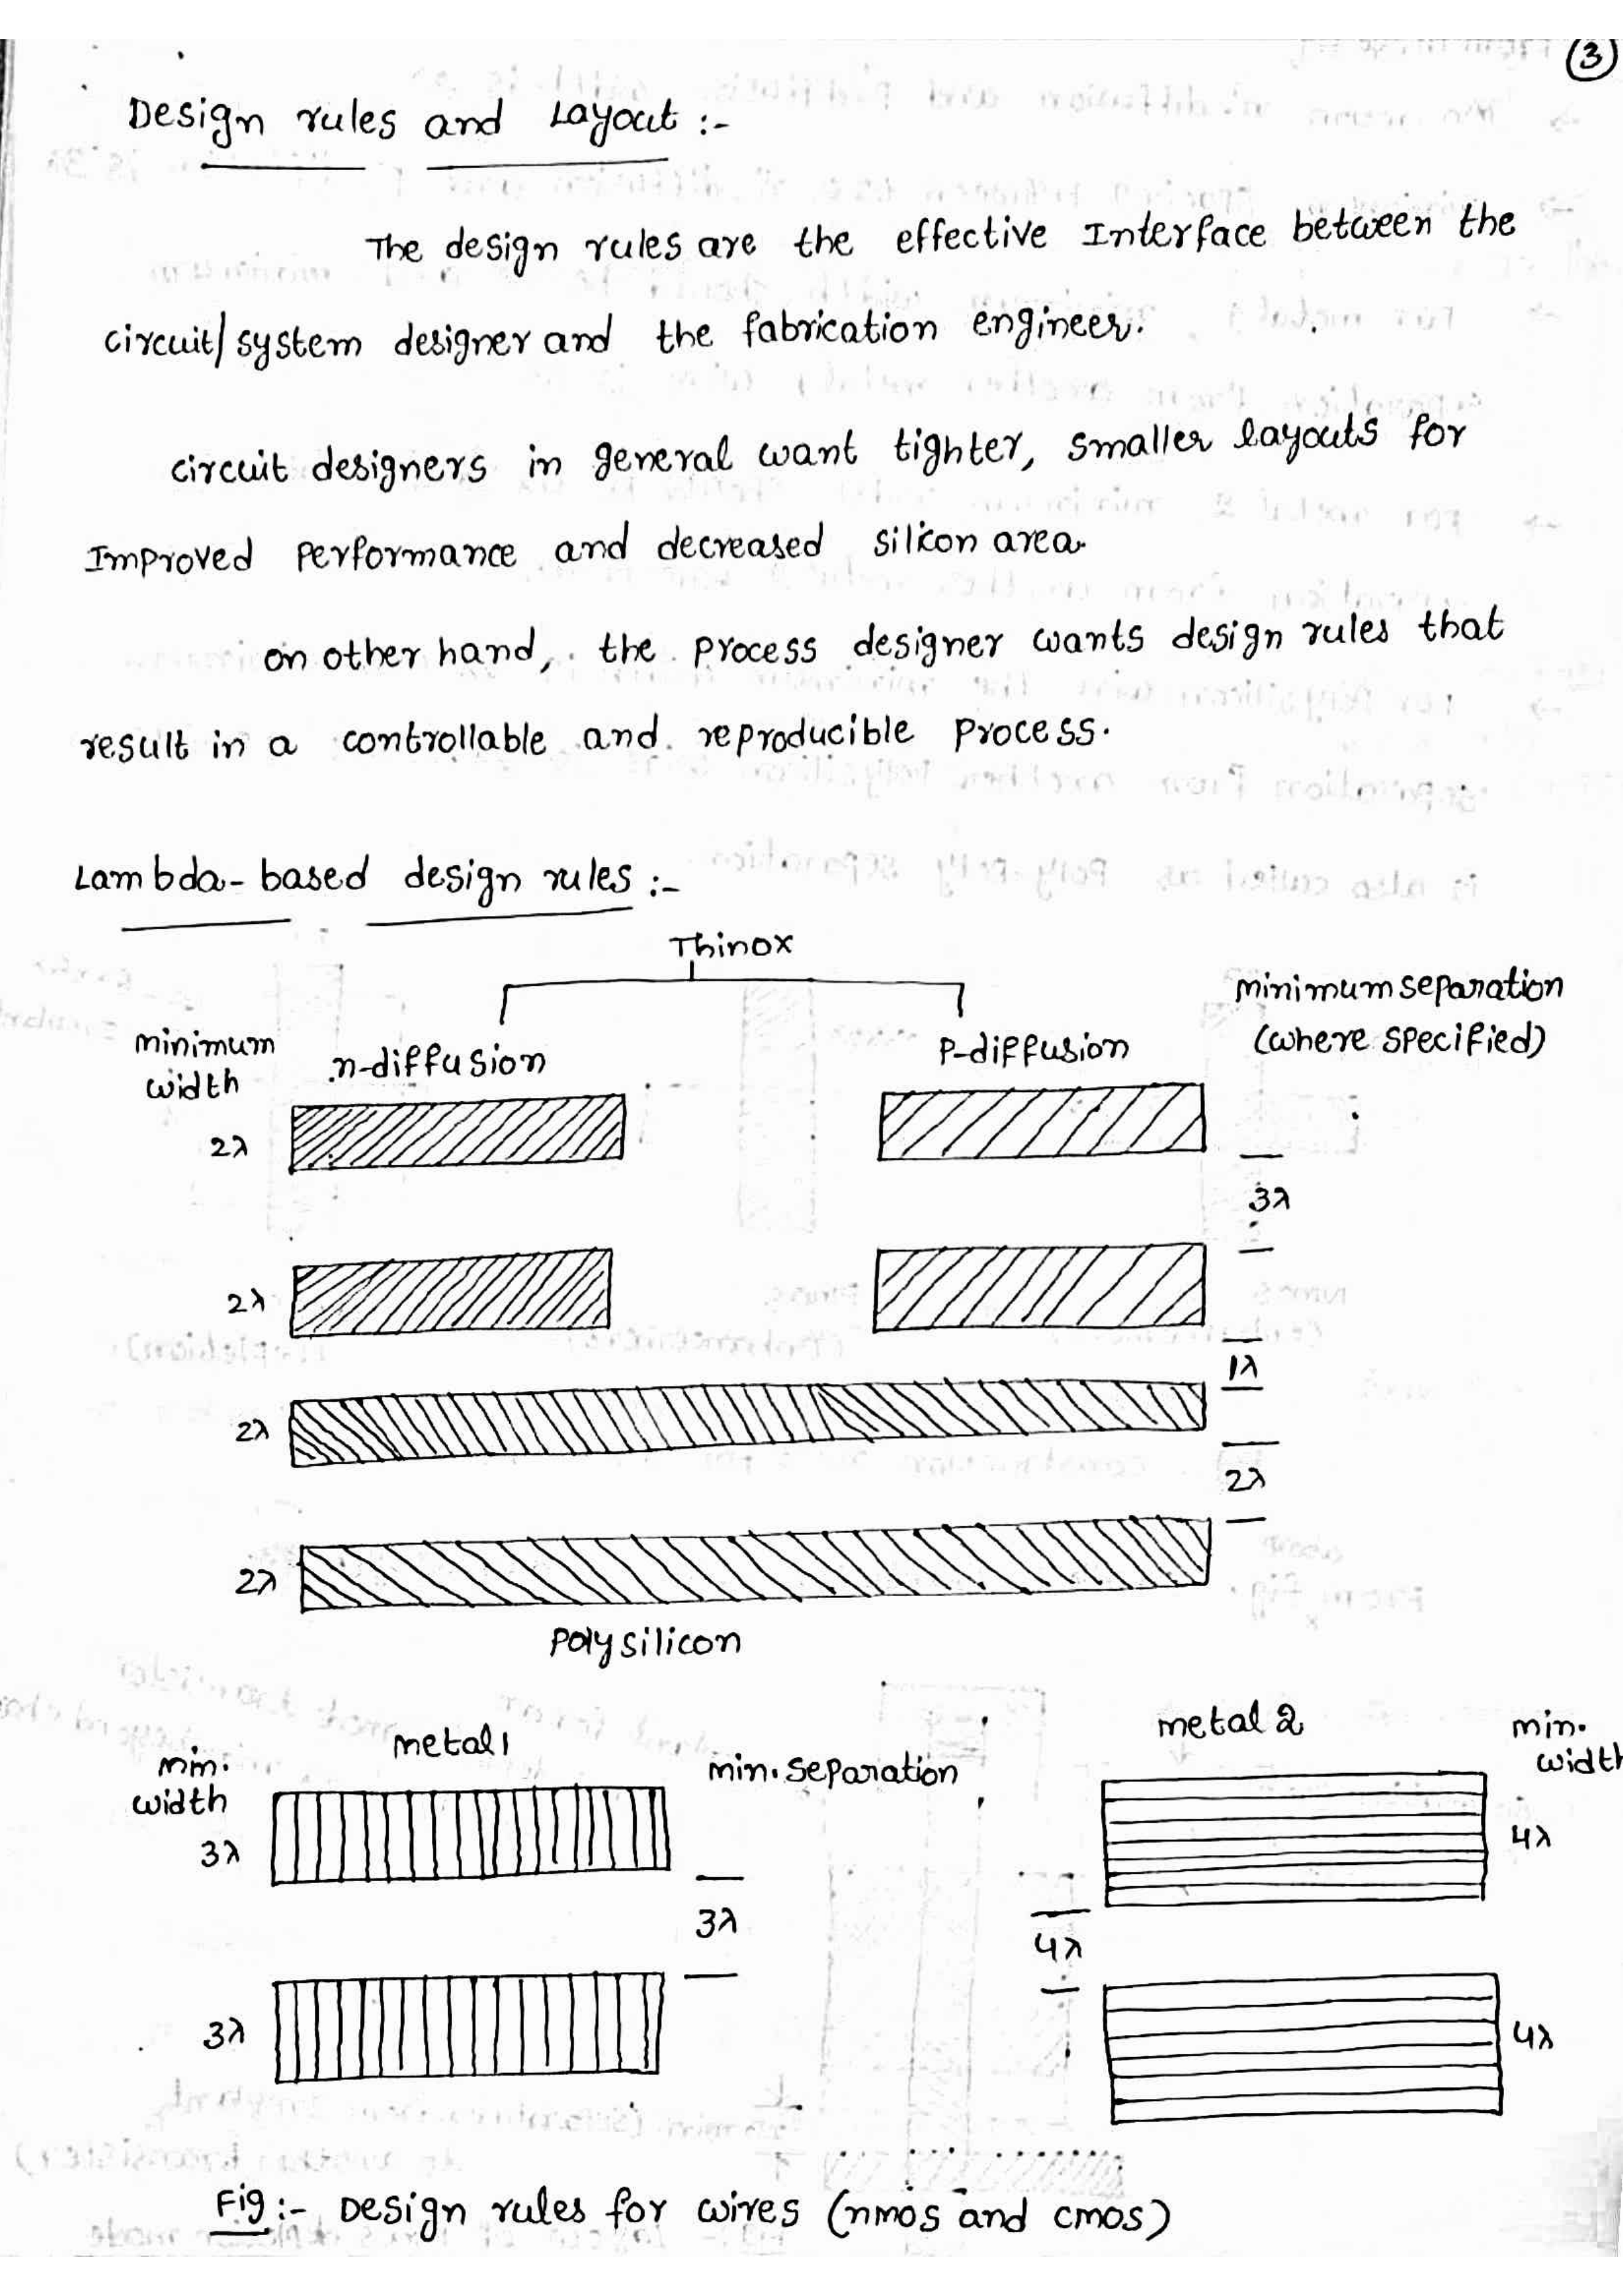 3
Design rules and Layout :-
The design rules are the effective Interface between the
circuit/system designer and the fabrication engineer.
circuit designers in general want tighter, smaller layouts for
Improved Performance and decreased silicon area.
on other hand, the process designer wants design rules that
result in a controllable and reproducible process.
Lambda-based design rules :-
Thinox
minimum separation
(where specified)
minimum
width
n-diffusion
P-diffusion
2λ
3λ
2λ
1λ
2λ
2λ
2λ
Polysilicon
metal 1
metal 2
min.
width
min. separation
min.
width
3λ
4λ
3λ
4λ
3λ
4λ
Fig :- Design rules for wires (nmos and cmos)